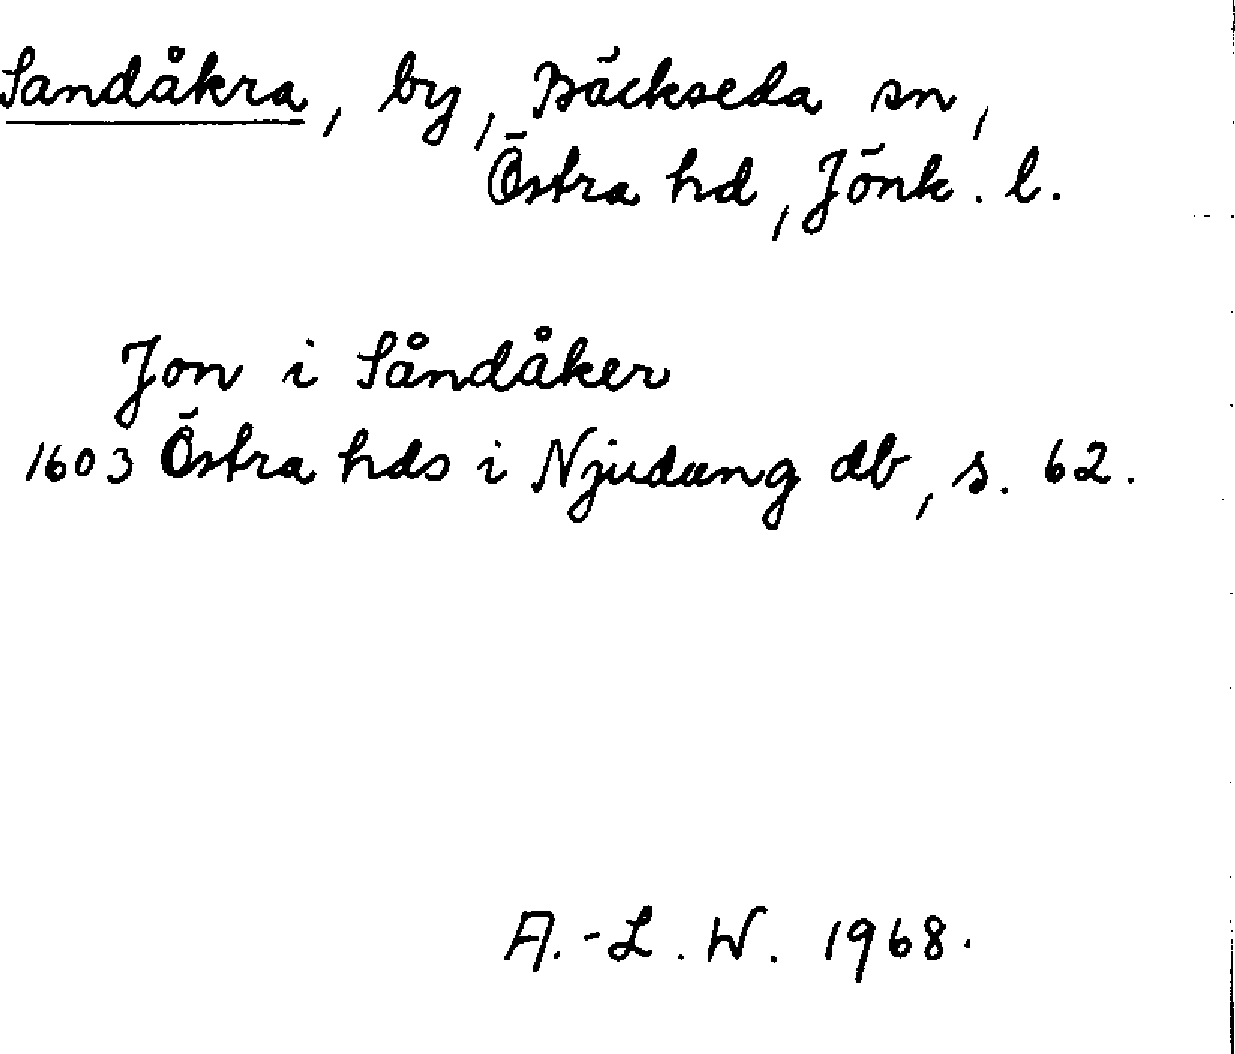 Sandåkra, by, Bäckseda sn,
Östra hd, Jönk. l.
Jon i Såndåker
1603 Östra hds i Njudung db, s. 62.
A.-L. W. 1968.